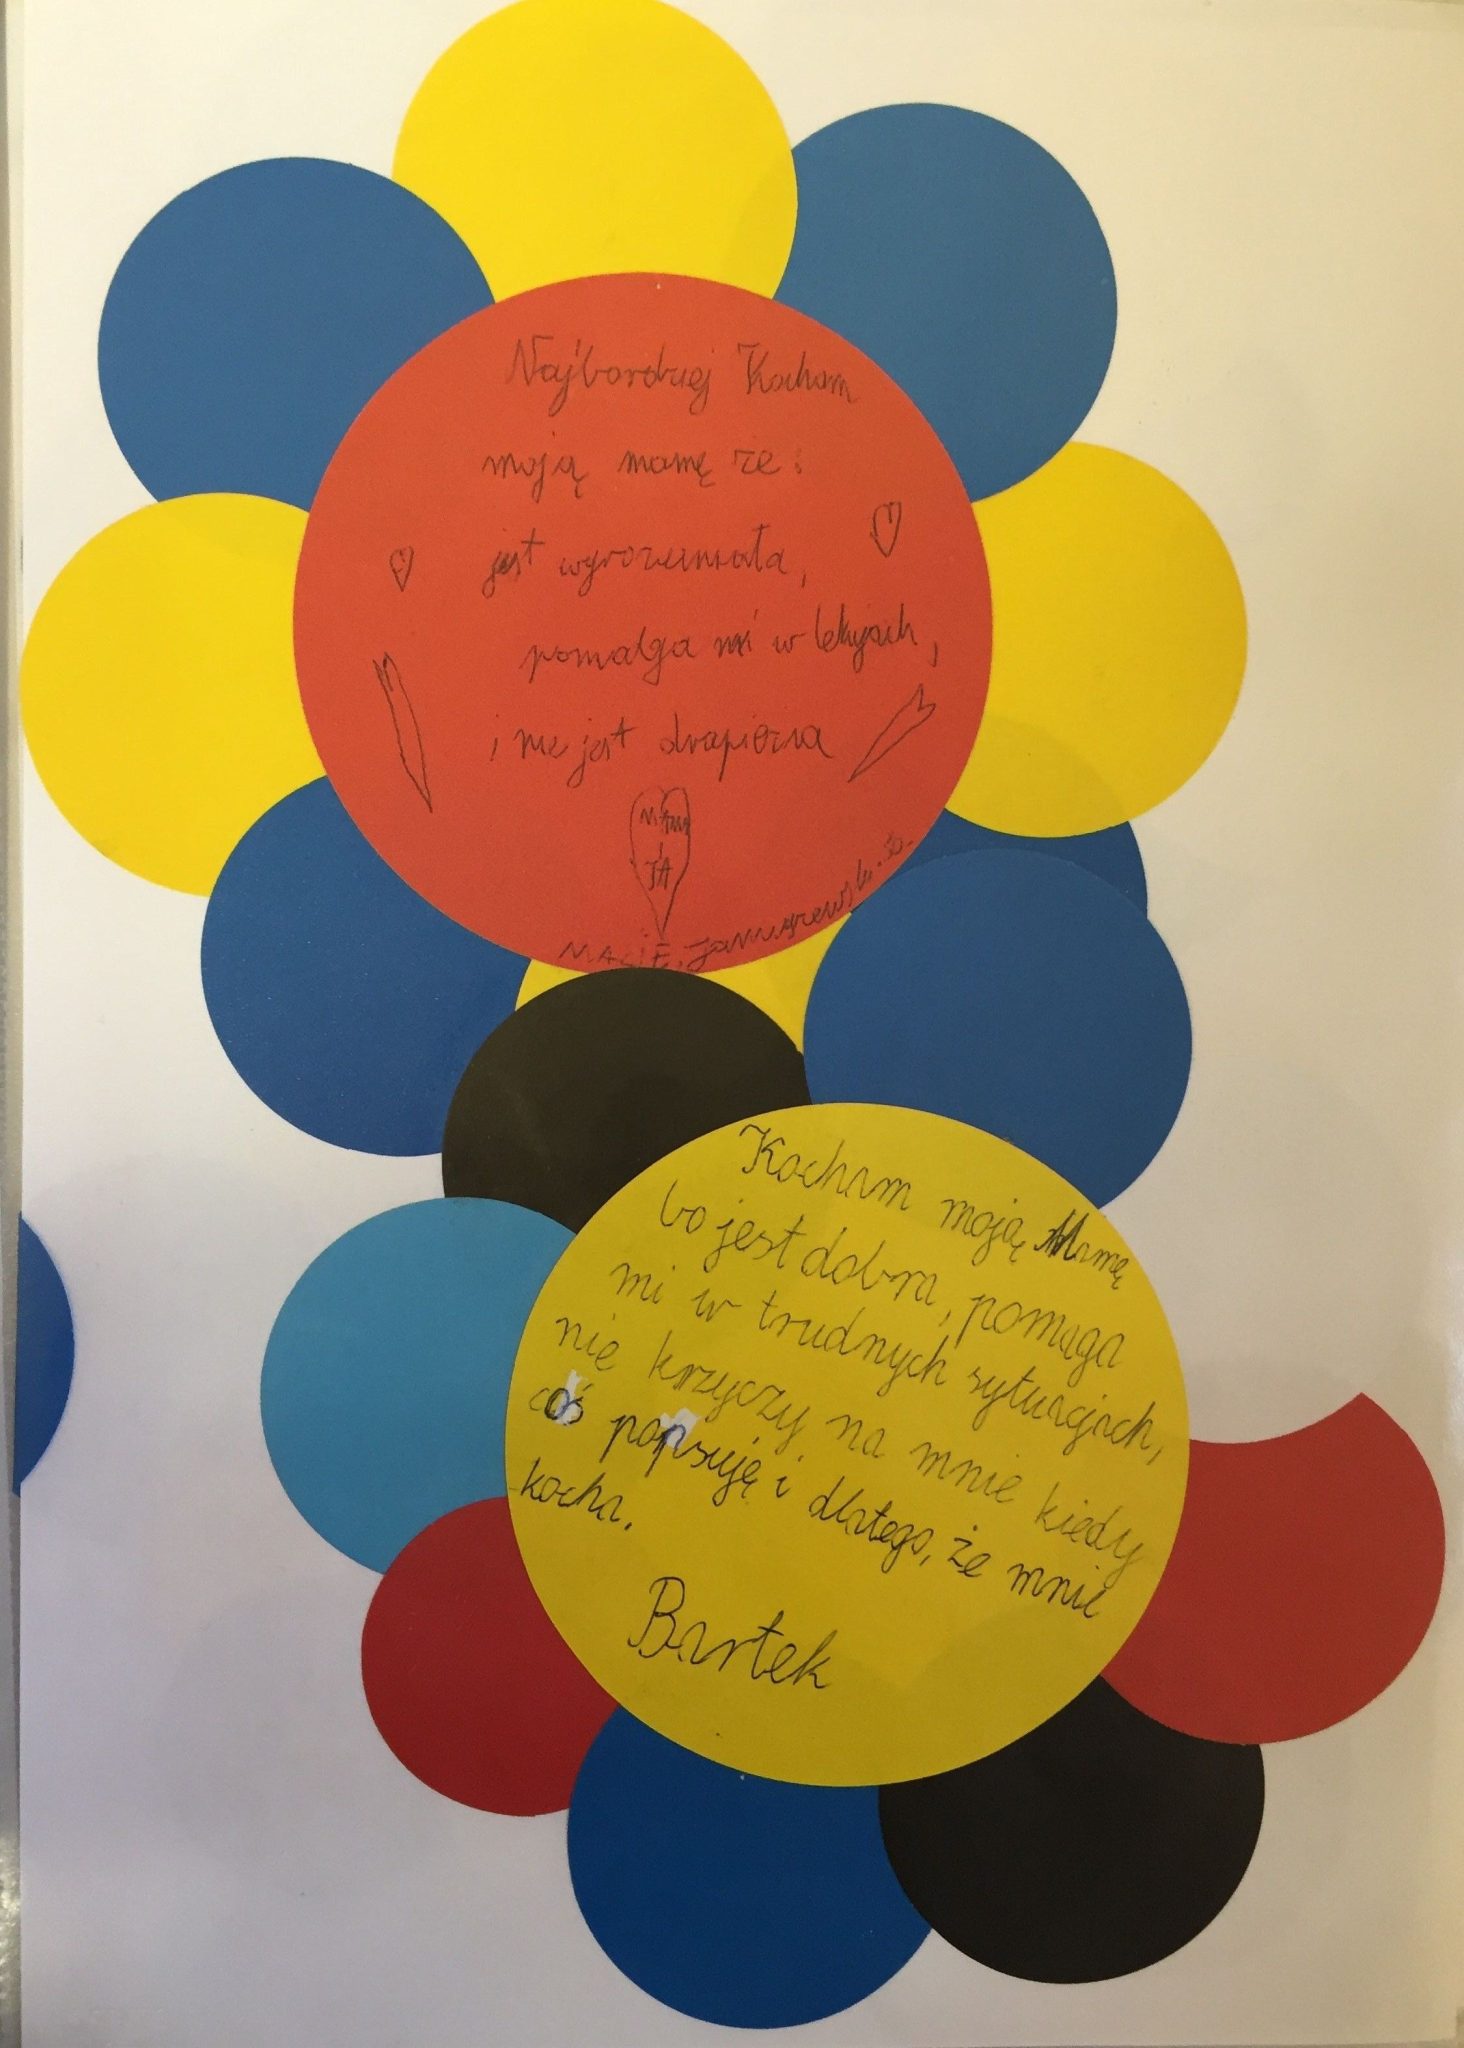 Najbardziej Kocham
moją mamę że:
jest wyrozumiała,
pomalga mi w lekcjach,
i nie jest drapieżna
MAM
JA
MACIE.
Kocham moją Mamę
bo jest dobra, pomaga
mi w trudnych sytuacjach,
nie krzyczy na mnie kiedy
coś popsuję i dlatego, że mnie
kocha.
Bartek